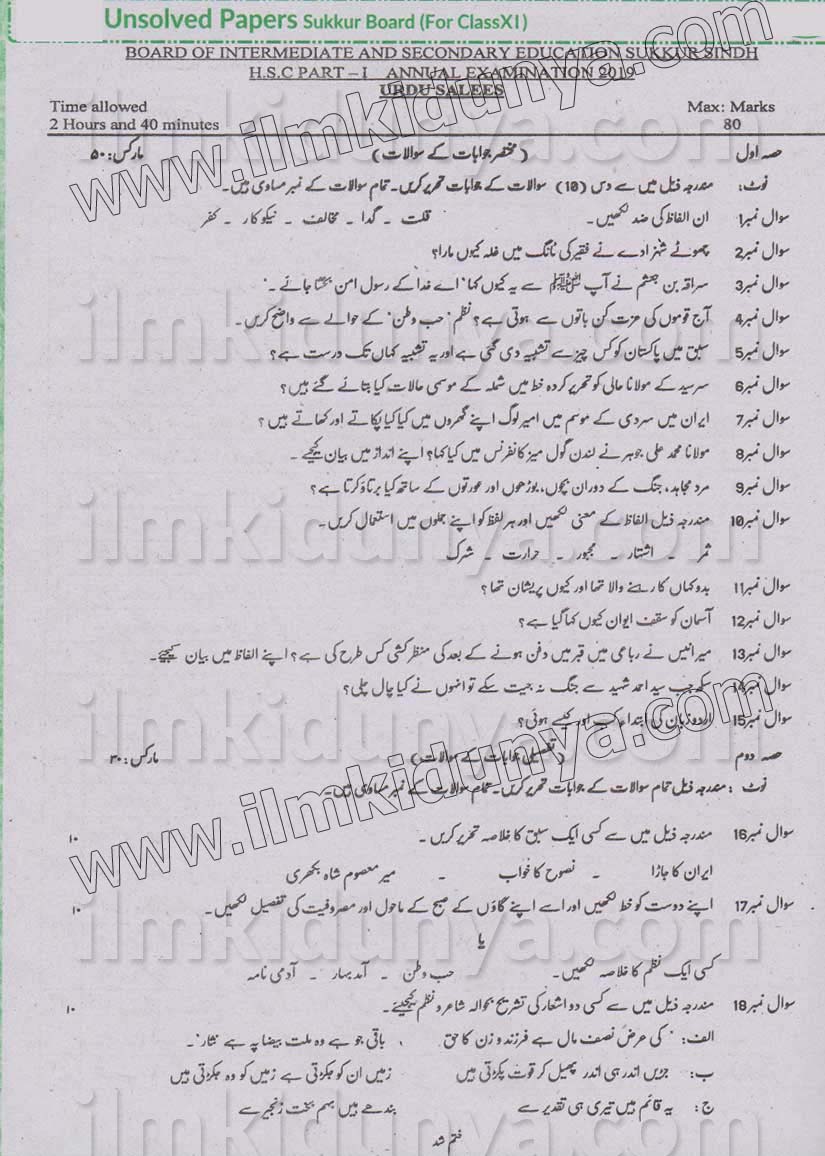 Unsolved Papers Sukkur Board (For ClassXI)
BOARD OF INTERMEDIATE AND SECONDARY EDUCATION SUKKUR SINDH
H.S.C PART – I ANNUAL EXAMINATION 2019
URDU SALEES
Time allowed Max: Marks
2 Hours and 40 minutes 80
حصہ اول (مختصر جوابات کے سوالات) مارکس: ۵۰
نوٹ: مندرجہ ذیل میں سے دس (10) سوالات کے جوابات تحریر کریں۔ تمام سوالات کے نمبر مساوی ہیں۔
سوال نمبر1 ان الفاظ کی ضد لکھیں۔ قلت - گدا - مخالف - نیکوکار - کفر
سوال نمبر2 چھوٹے شہزادے نے فقیر کی ٹانگ میں غلہ کیوں مارا؟
سوال نمبر3 سراقہ بن جعشم نے آپ ﷺ سے یہ کیوں کہا "اے خدا کے رسول امن بخشا جائے۔"
سوال نمبر4 آج قوموں کی عزت کن باتوں سے ہوتی ہے؟ نظم "حب وطن" کے حوالے سے واضح کریں۔
سوال نمبر5 سبق میں پاکستان کو کس چیز سے تشبیہ دی گئی ہے اور یہ تشبیہ کہاں تک درست ہے؟
سوال نمبر6 سرسید کے مولانا حالی کو تحریر کردہ خط میں شملہ کے موسمی حالات کیا بتائے گئے ہیں؟
سوال نمبر7 ایران میں سردی کے موسم میں امیر لوگ اپنے گھروں میں کیا کیا پکاتے اور کھاتے ہیں؟
سوال نمبر8 مولانا محمد علی جوہر نے لندن گول میز کانفرنس میں کیا کہا؟ اپنے انداز میں بیان کیجیے۔
سوال نمبر9 مرد مجاہد، جنگ کے دوران بچوں، بوڑھوں اور عورتوں کے ساتھ کیا برتاؤ کرتا ہے؟
سوال نمبر10 مندرجہ ذیل الفاظ کے معنی لکھیں اور ہر لفظ کو اپنے جملوں میں استعمال کریں۔
ثمر - اشتہار - مجبور - حرارت - شرک
سوال نمبر11 بدو کہاں کا رہنے والا تھا اور کیوں پریشان تھا؟
سوال نمبر12 آسمان کو سقف ایوان کیوں کہا گیا ہے؟
سوال نمبر13 میر انیس نے رباعی میں قبر میں دفن ہونے کے بعد کی منظر کشی کس طرح کی ہے؟ اپنے الفاظ میں بیان کیجیے۔
سوال نمبر14 سکھ جب سید احمد شہید سے جنگ نہ جیت سکے تو انہوں نے کیا چال چلی؟
سوال نمبر15 اردو زبان کی ابتداء کب اور کیسے ہوئی؟
حصہ دوم (تفصیلی جوابات کے سوالات) مارکس: ۳۰
نوٹ: مندرجہ ذیل تمام سوالات کے جوابات تحریر کریں۔ تمام سوالات کے نمبر مساوی ہیں۔
سوال نمبر16 مندرجہ ذیل میں سے کسی ایک سبق کا خلاصہ تحریر کریں۔ ۱۰
ایران کا جاڑا - نصوح کا خواب - میر معصوم شاہ بکھری
سوال نمبر17 اپنے دوست کو خط لکھیں اور اسے اپنے گاؤں کے صبح کے ماحول اور مصروفیت کی تفصیل لکھیں۔ ۱۰
یا
کسی ایک نظم کا خلاصہ لکھیں۔ حب وطن - آمد بہار - آدمی نامہ
سوال نمبر18 مندرجہ ذیل میں سے کسی دو اشعار کی تشریح بحوالہ شاعر و نظم کیجیئے۔ ۱۰
الف: "کی عرض نصف مال ہے فرزند و زن کا حق ، باقی جو ہے وہ ملت بیضا پہ ہے نثار"۔
ب: جڑیں اندر ہی اندر پھیل کر قوت پکڑتی ہیں زمیں ان کو جکڑتی ہے زمیں کو وہ جکڑتی ہیں
ج: یہ قائم ہیں تیری ہی تقدیر سے بندھے ہیں بہم بخت زنجیر سے
ختم شد
www.ilmkidunya.com
ilmkidunya.com
ilmkidunya.com
ilmkidunya.com
www.ilmkidunya.com
ilmkidunya.com
ilmkidunya.com
ilmkidunya.com